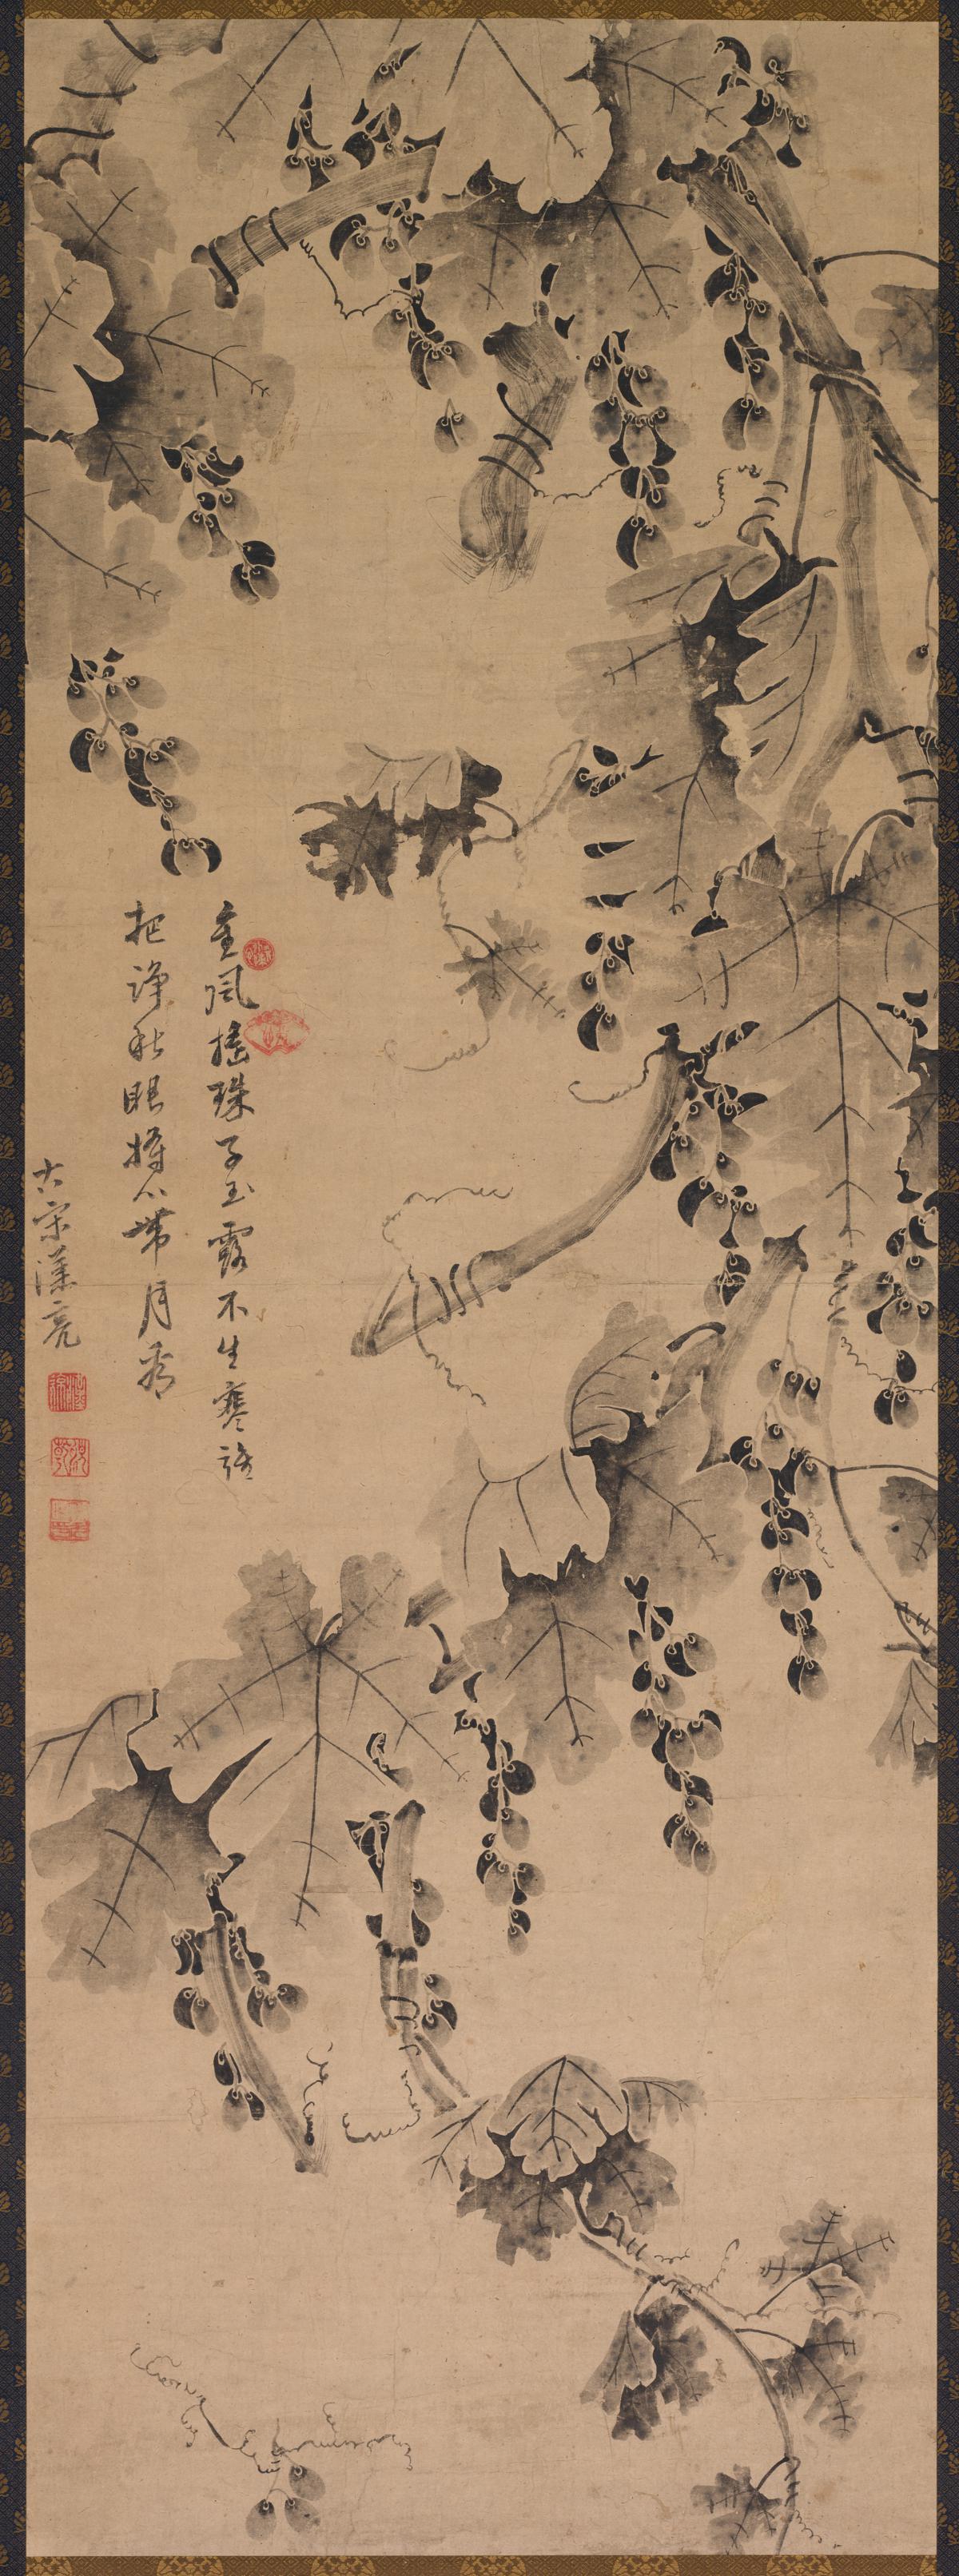 金風搖珠子玉露不生寒請
把淨秋眼將心帶月看
大宋漢亮